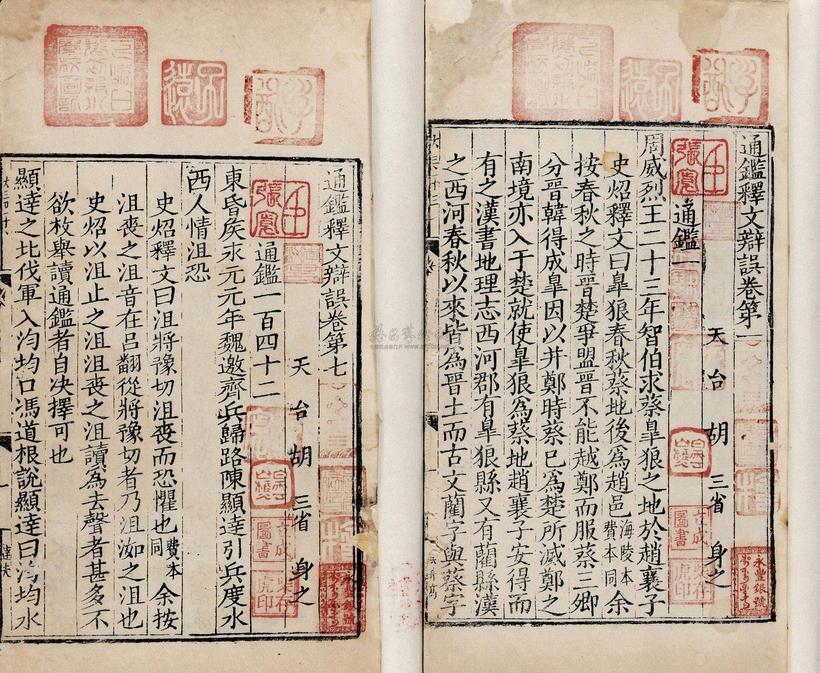 通鑑釋文辯誤卷第一
天台胡三省身之
通鑑一
周威烈王二十三年智伯求蔡皐狼之地於趙襄子
史炤釋文曰皐狼春秋蔡地後為趙邑海陵本費本同余
按春秋之時晉楚爭盟晉不能越鄭而服蔡三卿
分晉韓得成皐因以并鄭時蔡已為楚所滅鄭之
南境亦入于楚就使皐狼為蔡地趙襄子安得而
有之漢書地理志西河郡有皐狼縣又有藺縣漢
之西河春秋以來皆為晉土而古文藺字與蔡字
永豐銀號
通鑑釋文辯誤卷第七
天台胡三省身之
通鑑一百四十二
東昏矦永元元年魏邀齊兵歸路陳顯達引兵度水
西人情沮恐
史炤釋文曰沮將豫切沮喪而恐懼也費本同余按
沮喪之沮音在呂翻從將豫切者乃沮洳之沮也
史炤以沮止之沮沮喪之沮讀為去聲者甚多不
欲枚舉讀通鑑者自決擇可也
顯達之北伐軍入汮均口馮道根說顯達曰汮均水
永豐銀號